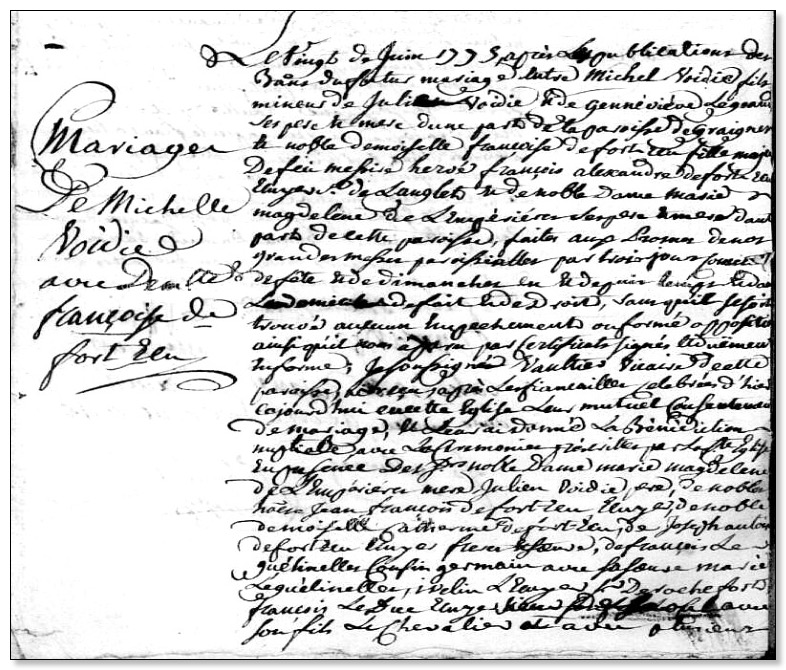 Mariages
De Michelle
Voidie
avec Demlle
françoise de
fort Ecu
Le vingt de Juin 1775 après Les publications des
Bans du futur mariage Entre Michel Voidie fils
mineur de Julien Voidie & de Genneviève Legrand
ses pere & mere d'une part de la paroisse de graigner
& noble demoiselle françoise de fort Ecu fille maj
De feu messire hervé françois alexandre de fort Ecu
Ecuyer Sr de Langlet & de noble Dame marie
magdelene de L'Empérière ses pere & mere d'aut
part de cette paroisse, faites aux Prosnes de nos
grandes messes paroissielles par trois jours
de fête & de dimanches
Lendemain de fait & de droit, sans qu'il se soit
trouvé aucun Empechement ou formé opposition
ainsi qu'il par certificats signés &
Informé, Je soussigné Vaultier Vicaire de cette
paroisse, après Les fiancailles celebrées d'hier
cejourd'hui en cette Eglise Leur mutuel Consentement
de mariage, & Leur ai donné La Bénédiction
nuptialle avec Les Ceremonies préscrites par La Ste Eglise
En presence des noble Dame marie magdelene
de L'Empérière mere, Julien Voidie pere, de noble
homme Jean françois de fort Ecu Ecuyer, de noble
demoiselle Catherine de fort Ecu, de Joseph antoi
de fort Ecu Ecuyer frere & soeur, de françois Le
quélinelles Cousin germain avec sa soeur marie
Lequélinelles, Ecuyer Sr De rochefort
françois Le Duc Ecuyer avec
son fils Le Chevalier & avec plusieurs